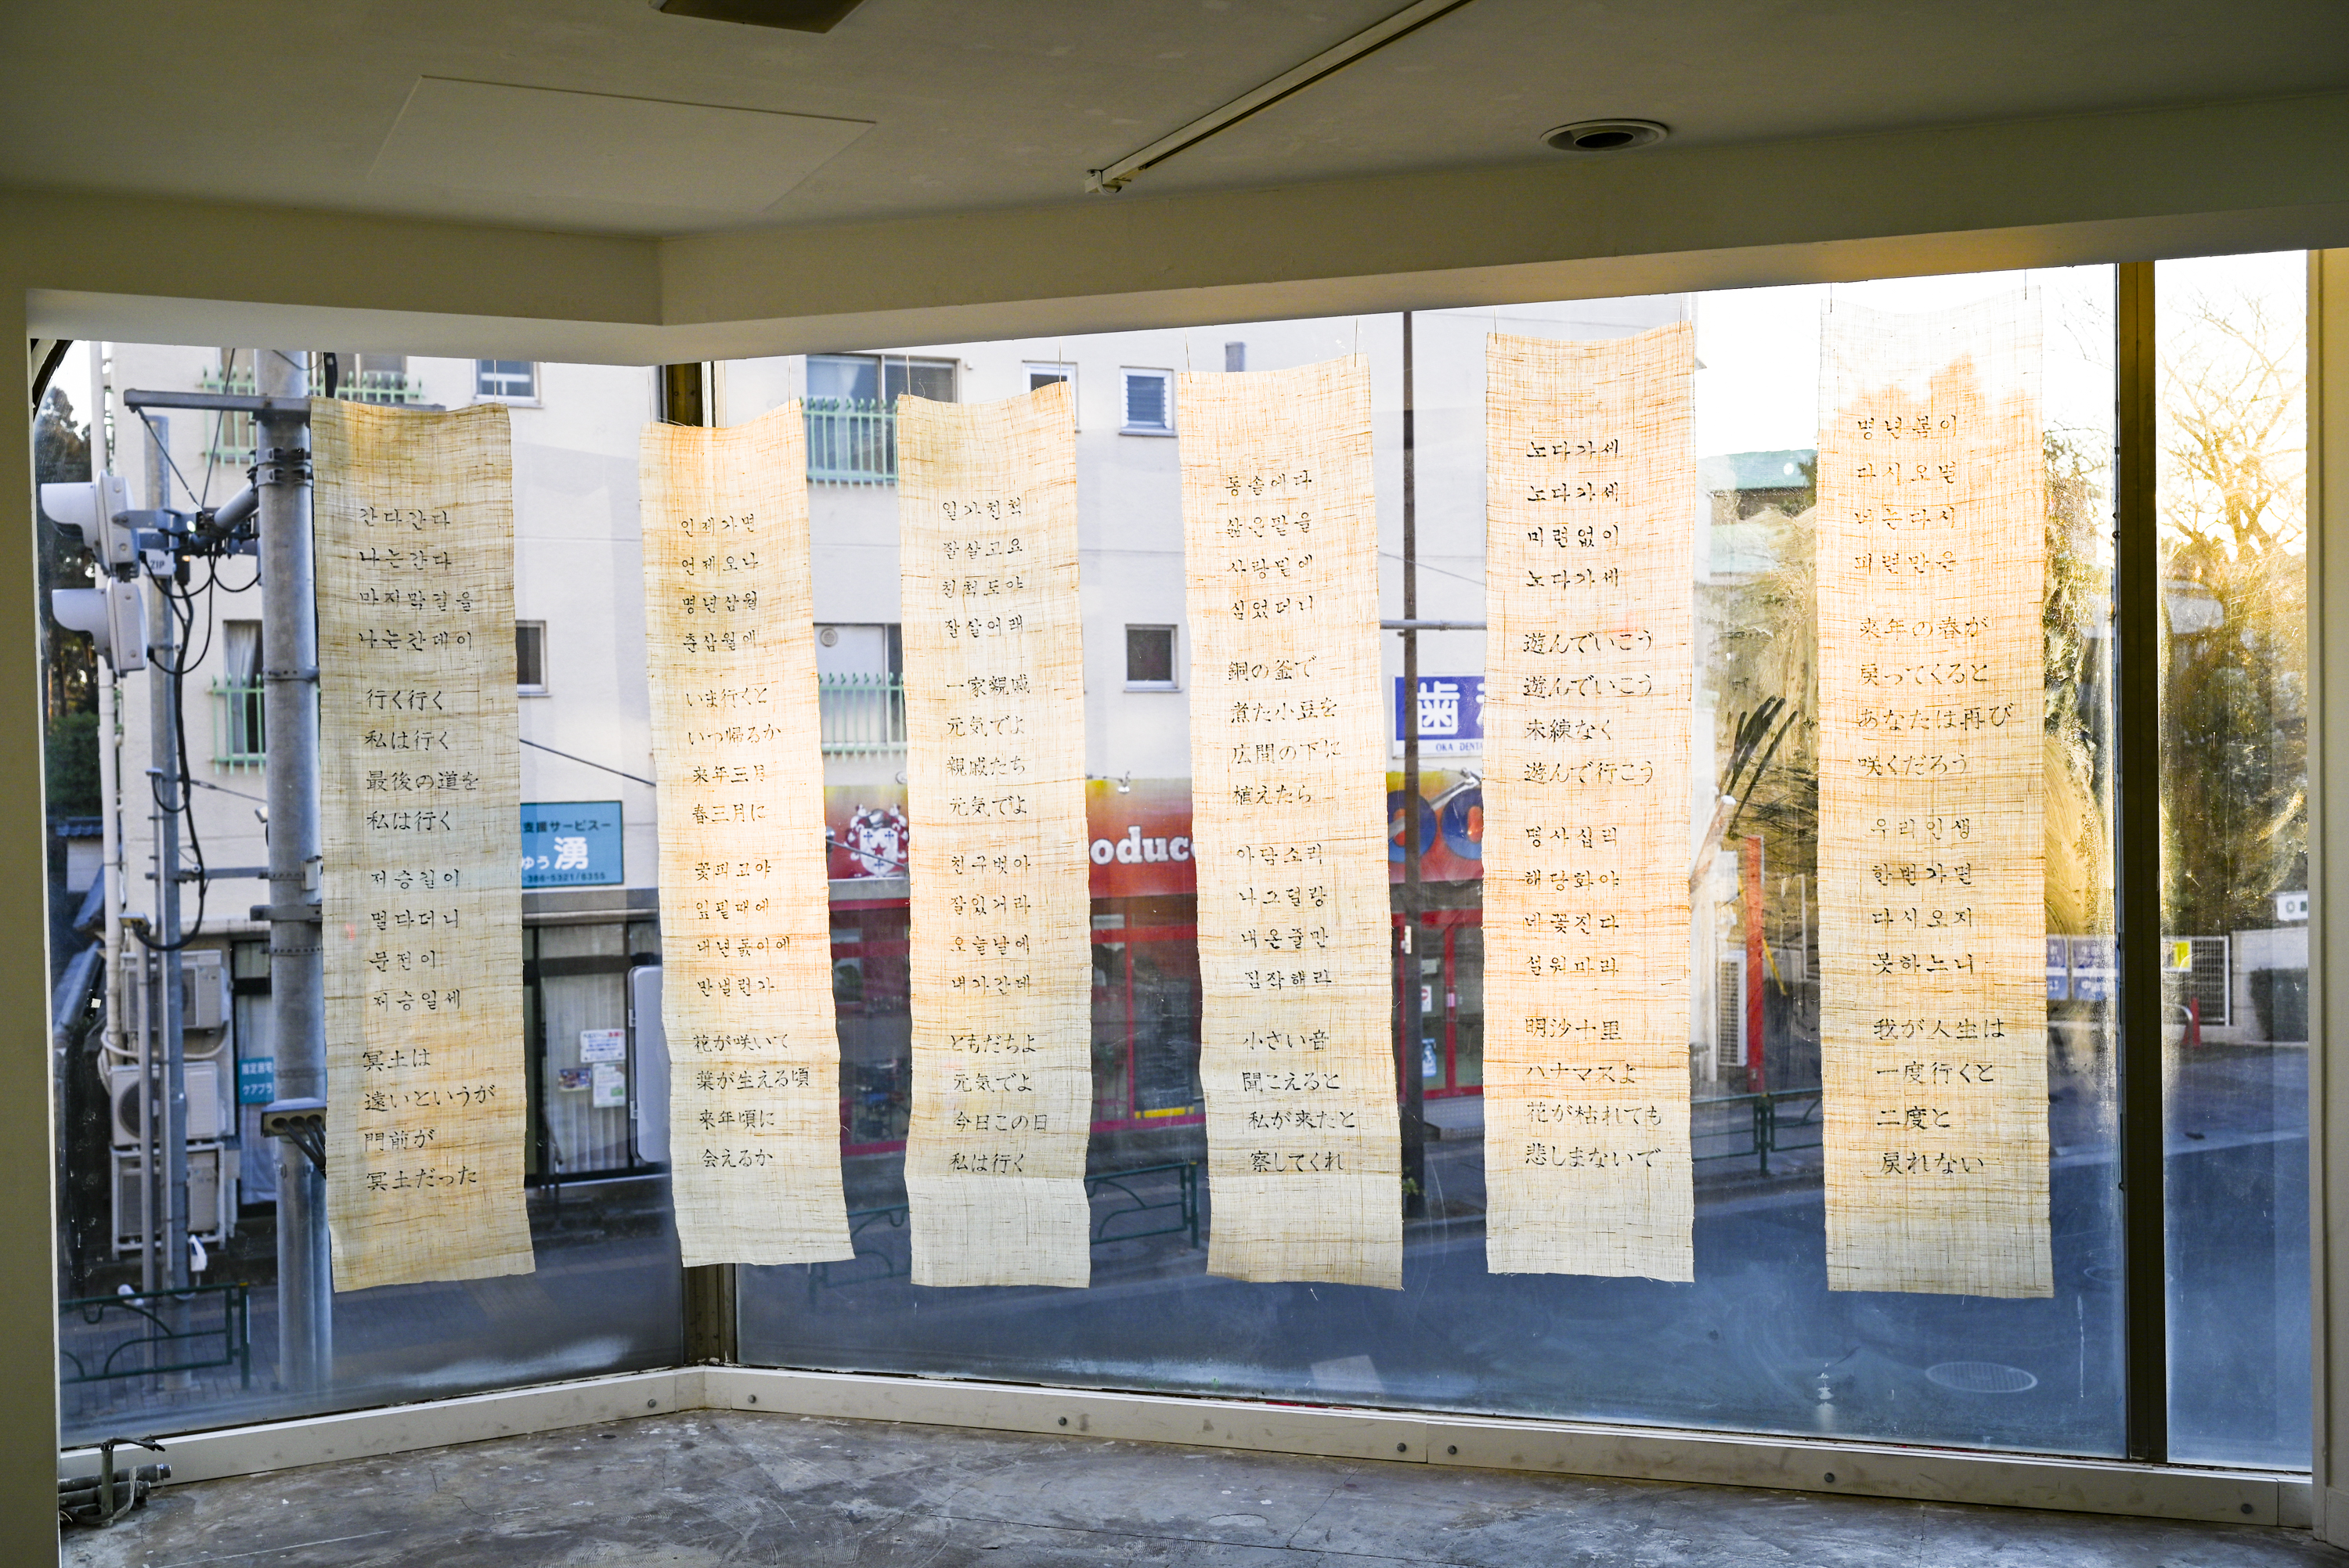 간다간다
나는간다
마지막길을
나는간데이
行く行く
私は行く
最後の道を
私は行く
저승길이
멀다더니
문전이
저승일세
冥土は
遠いというが
門前が
冥土だった
인제가면
언제오나
명년삼월
춘삼월에
いま行くと
いつ帰るか
来年三月
春三月に
꽃피고야
잎필때에
내년돐이에
만낼런가
花が咲いて
葉が生える頃
来年頃に
会えるか
일가친척
잘살고요
친척도야
잘살어래
一家親戚
元気でよ
親戚たち
元気でよ
친구벗아
잘있거라
오늘날에
내가간데
ともだちよ
元気でよ
今日この日
私は行く
동솥에다
삶은팥을
사랑밑에
심었더니
銅の釜で
煮た小豆を
広間の下に
植えたら
아담소리
나그덜랑
내온줄만
짐작해라
小さい音
聞こえると
私が来たと
察してくれ
노다가세
노다가세
미련없이
노다가세
遊んでいこう
遊んでいこう
未練なく
遊んで行こう
명사십리
해당화야
네꽃진다
설워마라
明沙十里
ハナマスよ
花が枯れても
悲しまないで
명년봄이
다시오면
너는다시
피련만은
来年の春が
戻ってくると
あなたは再び
咲くだろう
우리인생
한번가면
다시오지
못하느니
我が人生は
一度行くと
二度と
戻れない
支援サービス
ゆう 湧
-386-5321/6355
ZIP
oduc
歯
OKA DENTA
指定居宅
ケアプラ